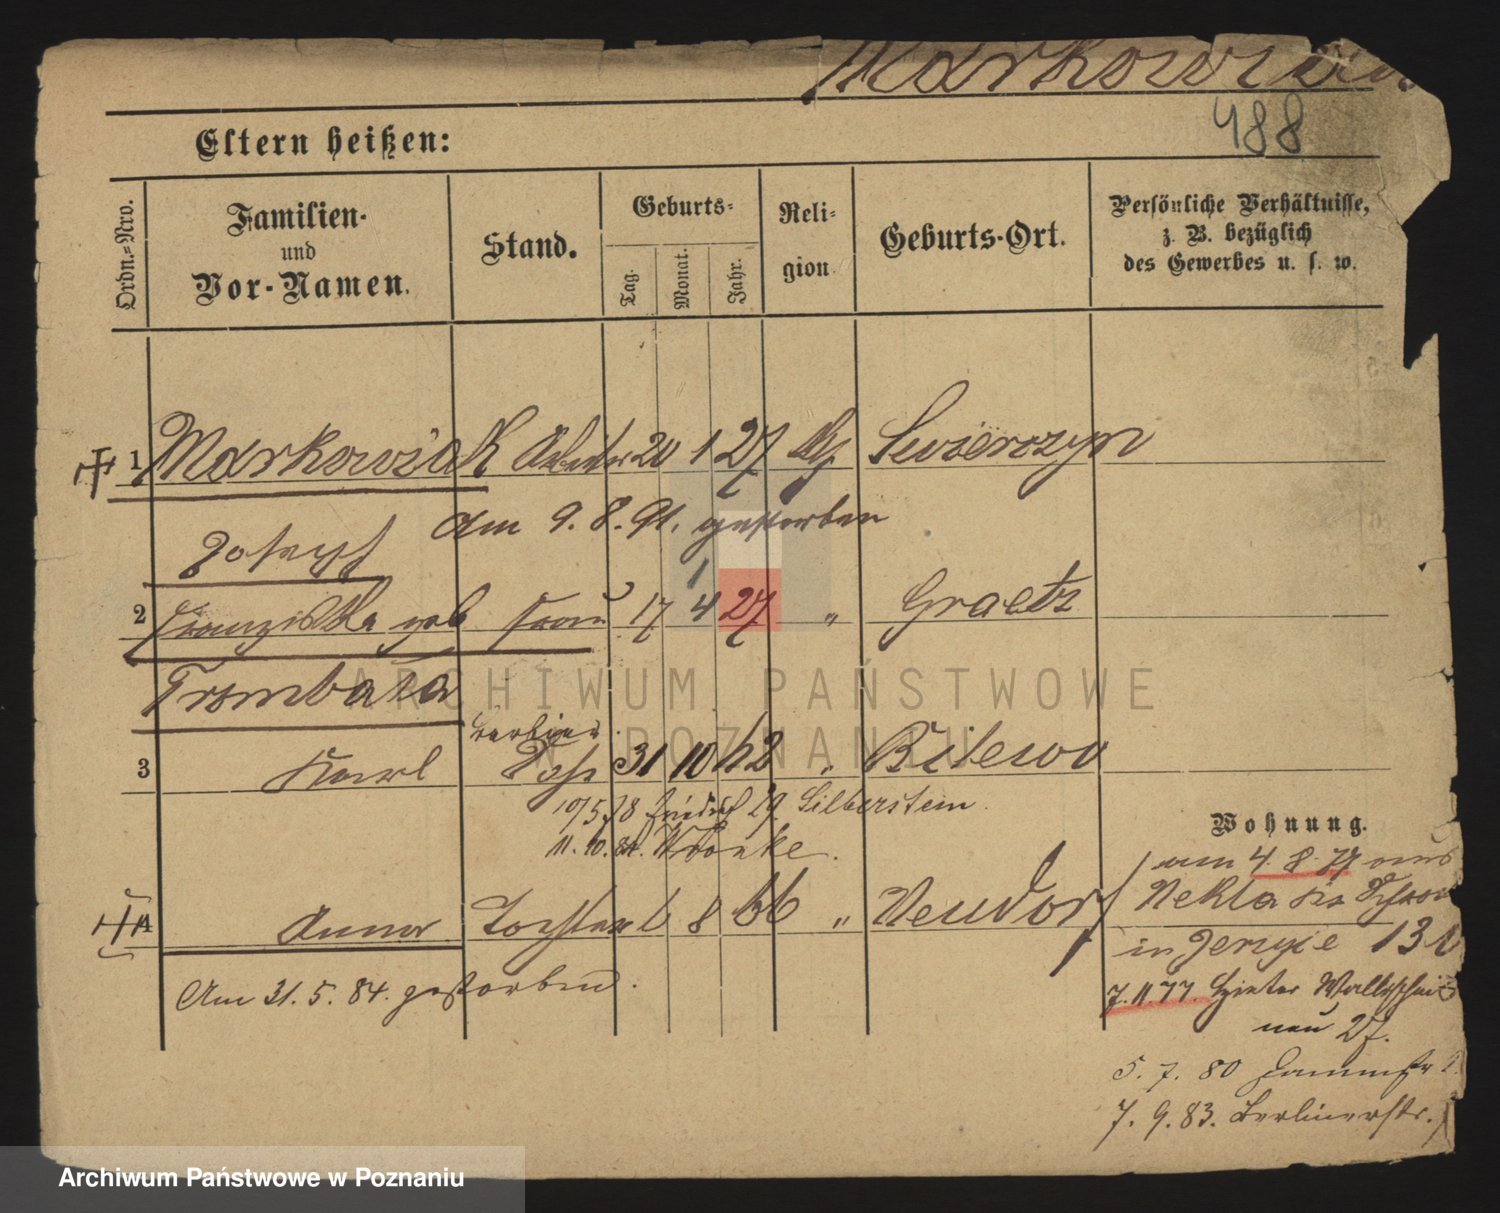 Markowiak
488
Eltern heißen:
Ordn.-Nro.
Familien- und Vor-Namen.
Stand.
Geburts-
Tag.
Monat.
Jahr.
Reli-
gion.
Geburts-Ort.
Persönliche Verhältnisse,
z. B. bezüglich
des Gewerbes u. s. w.
1 Markowiak Arbeiter 20 1 27 Swierczyn
Am 9. 8. 91. gestorben
Joseph
1
2 Franziska geb Frau 17 4 27 " Graetz
Trombala
3 Karl Sohn 31 10 62 " Kilewo
10/5 78 Friedrich 29. Silberstein.
11. 10. 84. Wronke.
4 Anna Tochter 6 8 66 " Neudorf
Am 31. 5. 84. gestorben.
Wohnung.
am 4. 8. 77 aus
Nekla
in Jersyce 131
7. 11. 77. Hinter Wallischei
neu 27.
5. 7. 80 Dammstr
7. 9. 83. Berlinerstr.
ARCHIWUM PAŃSTWOWE
W POZNANIU
Archiwum Państwowe w Poznaniu